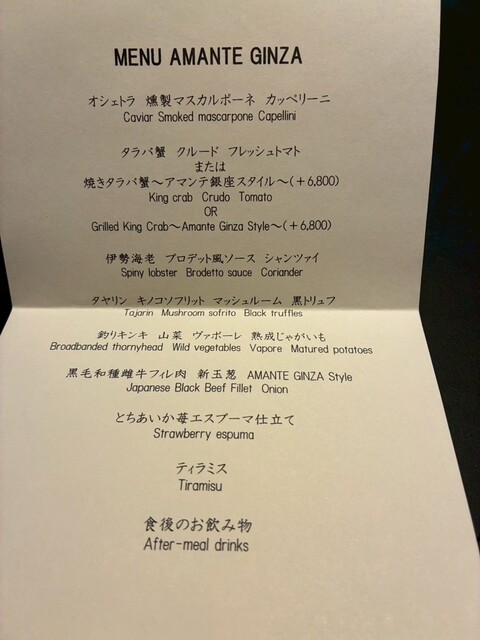 MENU AMANTE GINZA
オシェトラ 燻製マスカルポーネ カッペリーニ
Caviar Smoked mascarpone Capellini
タラバ蟹 クルード フレッシュトマト
または
焼きタラバ蟹～アマンテ銀座スタイル～(＋6,800)
King crab Crudo Tomato
OR
Grilled King Crab～Amante Ginza Style～(＋6,800)
伊勢海老 ブロデット風ソース シャンツァイ
Spiny lobster Brodetto sauce Coriander
タヤリン キノコソフリット マッシュルーム 黒トリュフ
Tajarin Mushroom sofrito Black truffles
釣りキンキ 山菜 ヴァポーレ 熟成じゃがいも
Broadbanded thornyhead Wild vegetables Vapore Matured potatoes
黒毛和種雌牛フィレ肉 新玉葱 AMANTE GINZA Style
Japanese Black Beef Fillet Onion
とちあいか苺エスプーマ仕立て
Strawberry espuma
ティラミス
Tiramisu
食後のお飲み物
After-meal drinks